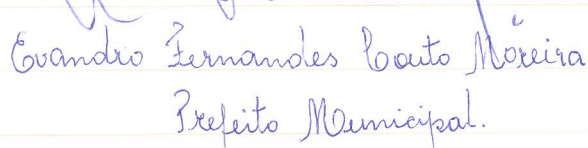 Evandro Fernandes Couto Moreira
Prefeito Municipal.